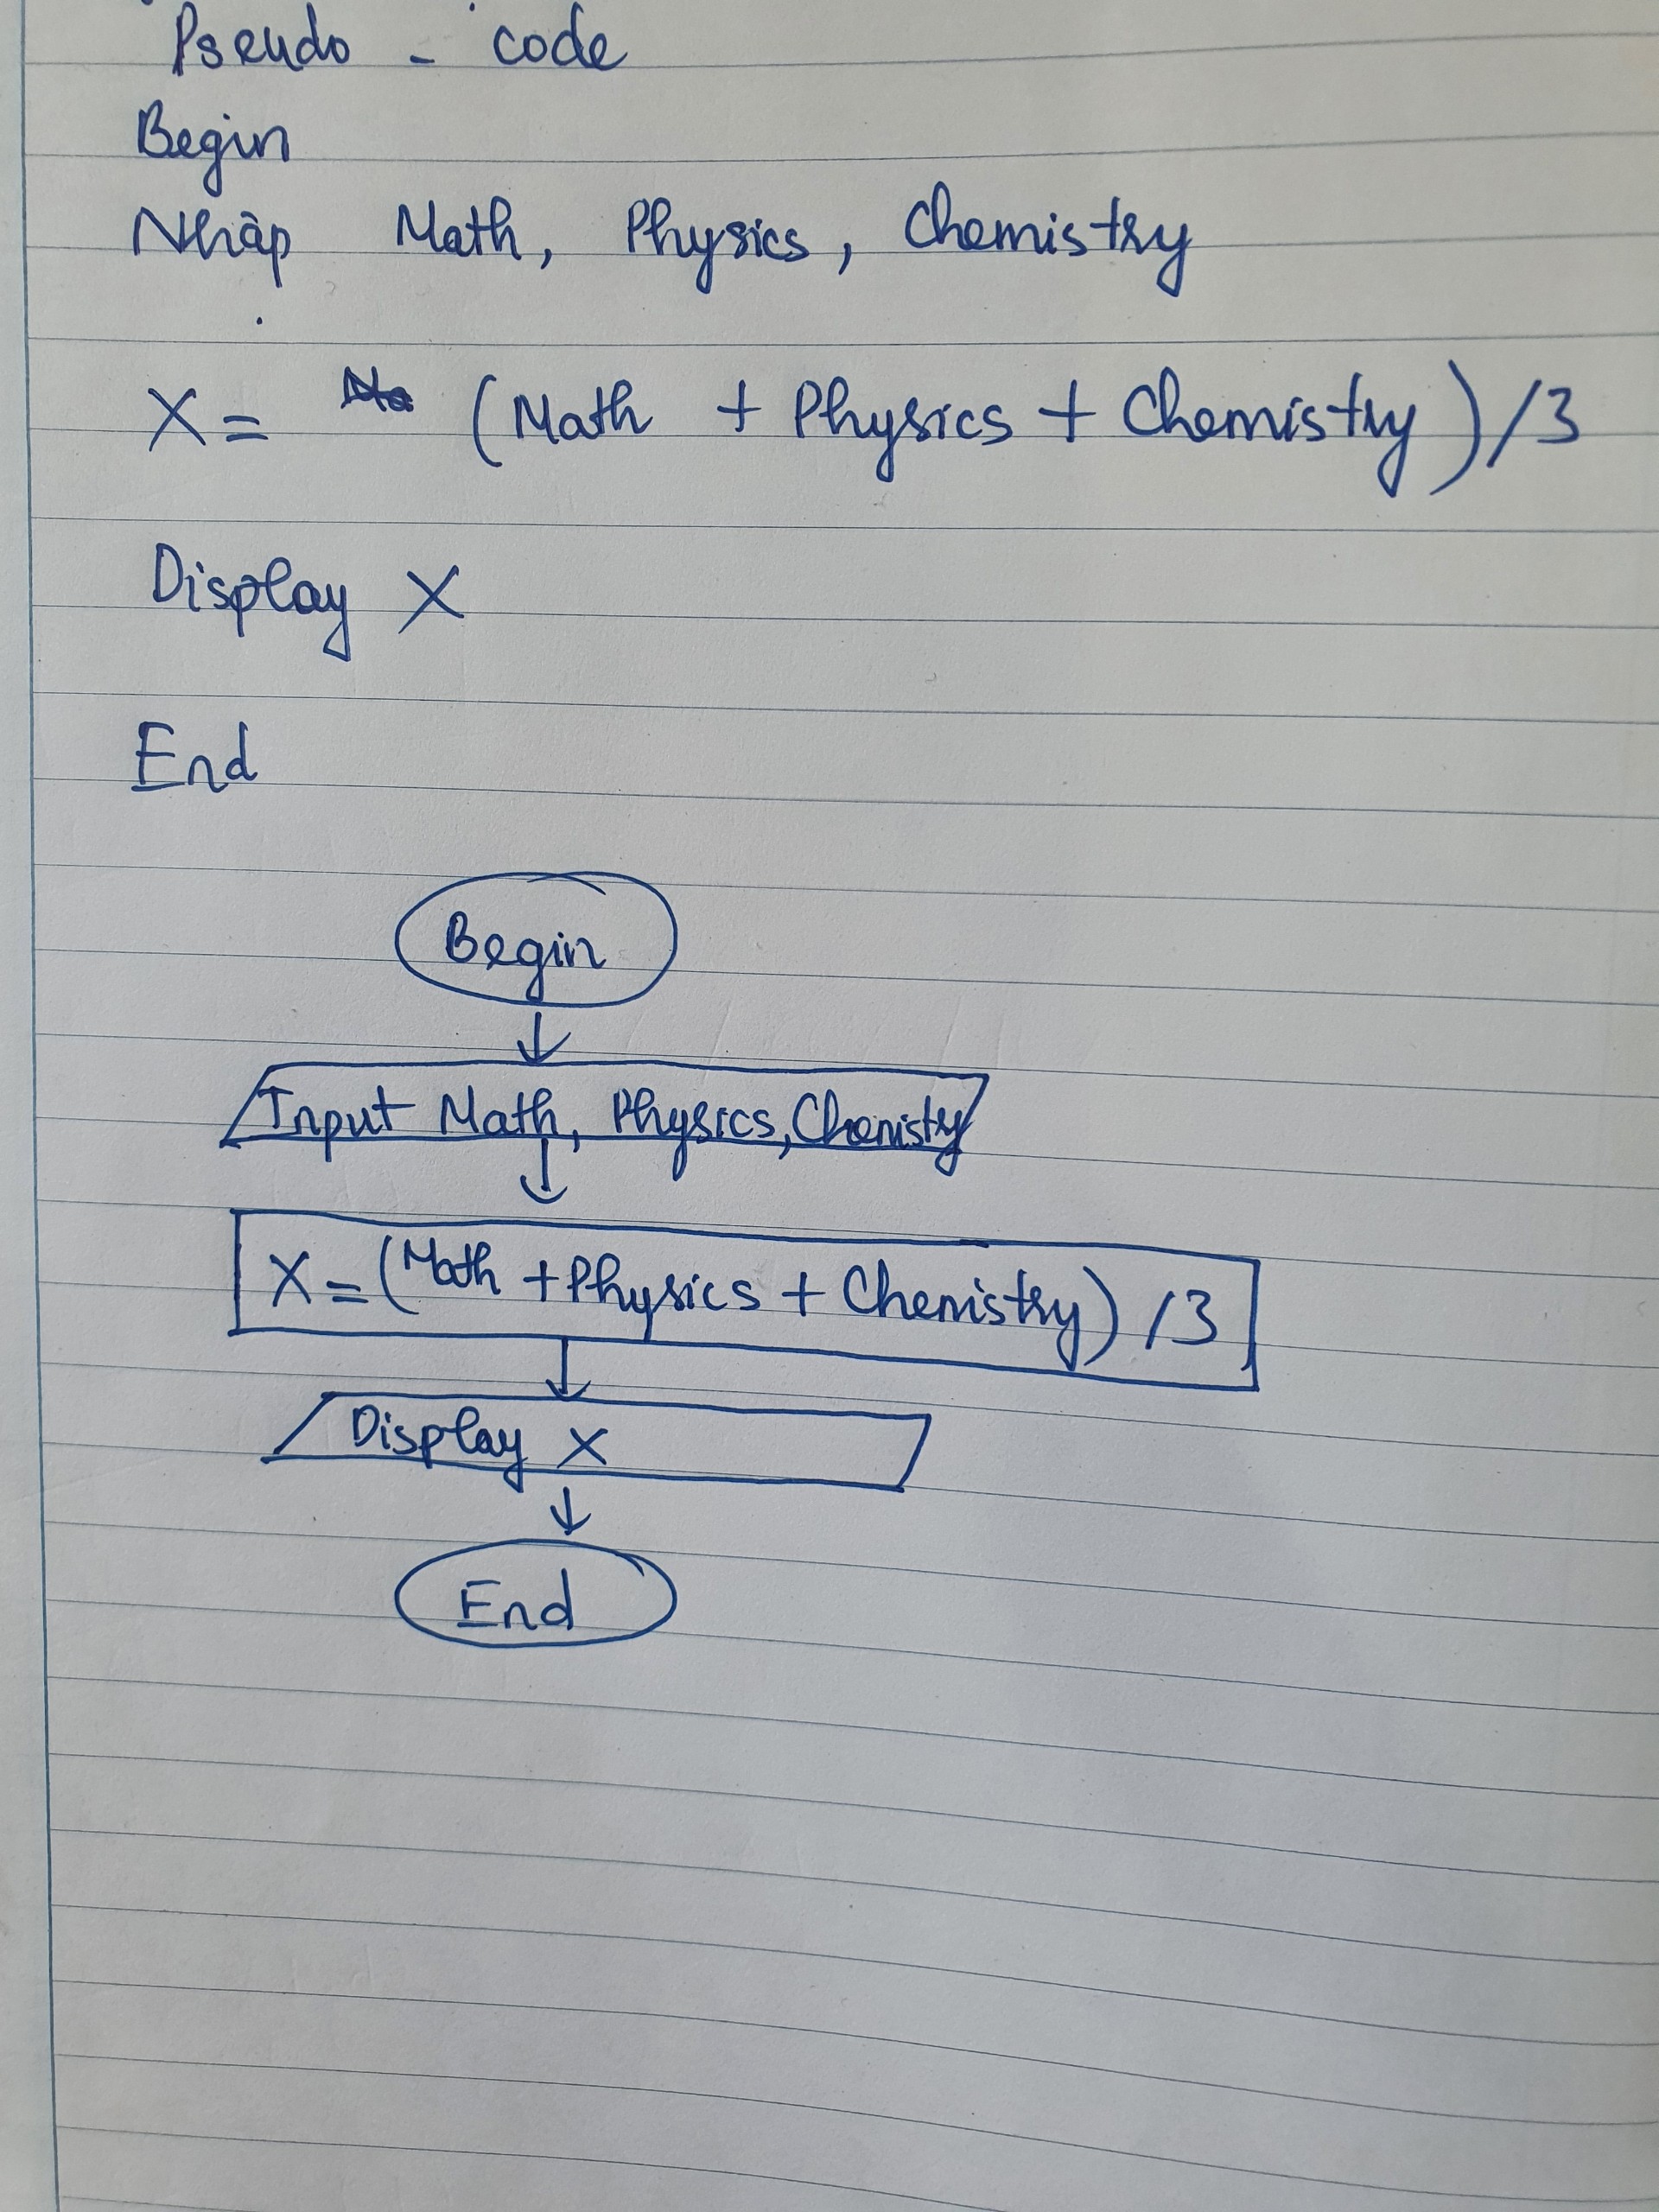 Pseudo - code
Begin
Nhập Math, Physics, Chemistry
X = (Math + Physics + Chemistry) / 3
Display X
End
Begin
Input Math, Physics, Chemistry
X = (Math + Physics + Chemistry) / 3
Display X
End